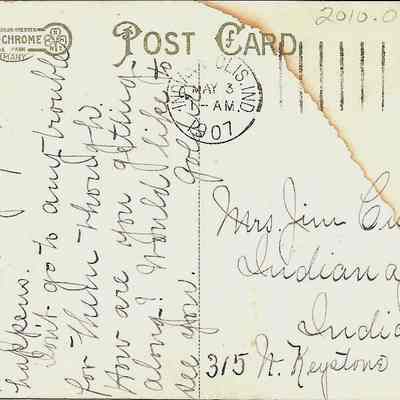 2010.0
POST CARD
CHROME
MANY
INDIANAPOLIS, IND.
MAY 3
-AM
1907
happens.
Don't go to any trouble
for them though.
How are you getting
along? Would like to
see you.
Goldie
Mrs. Jim Cu
Indiana
India
315 N. Keystone